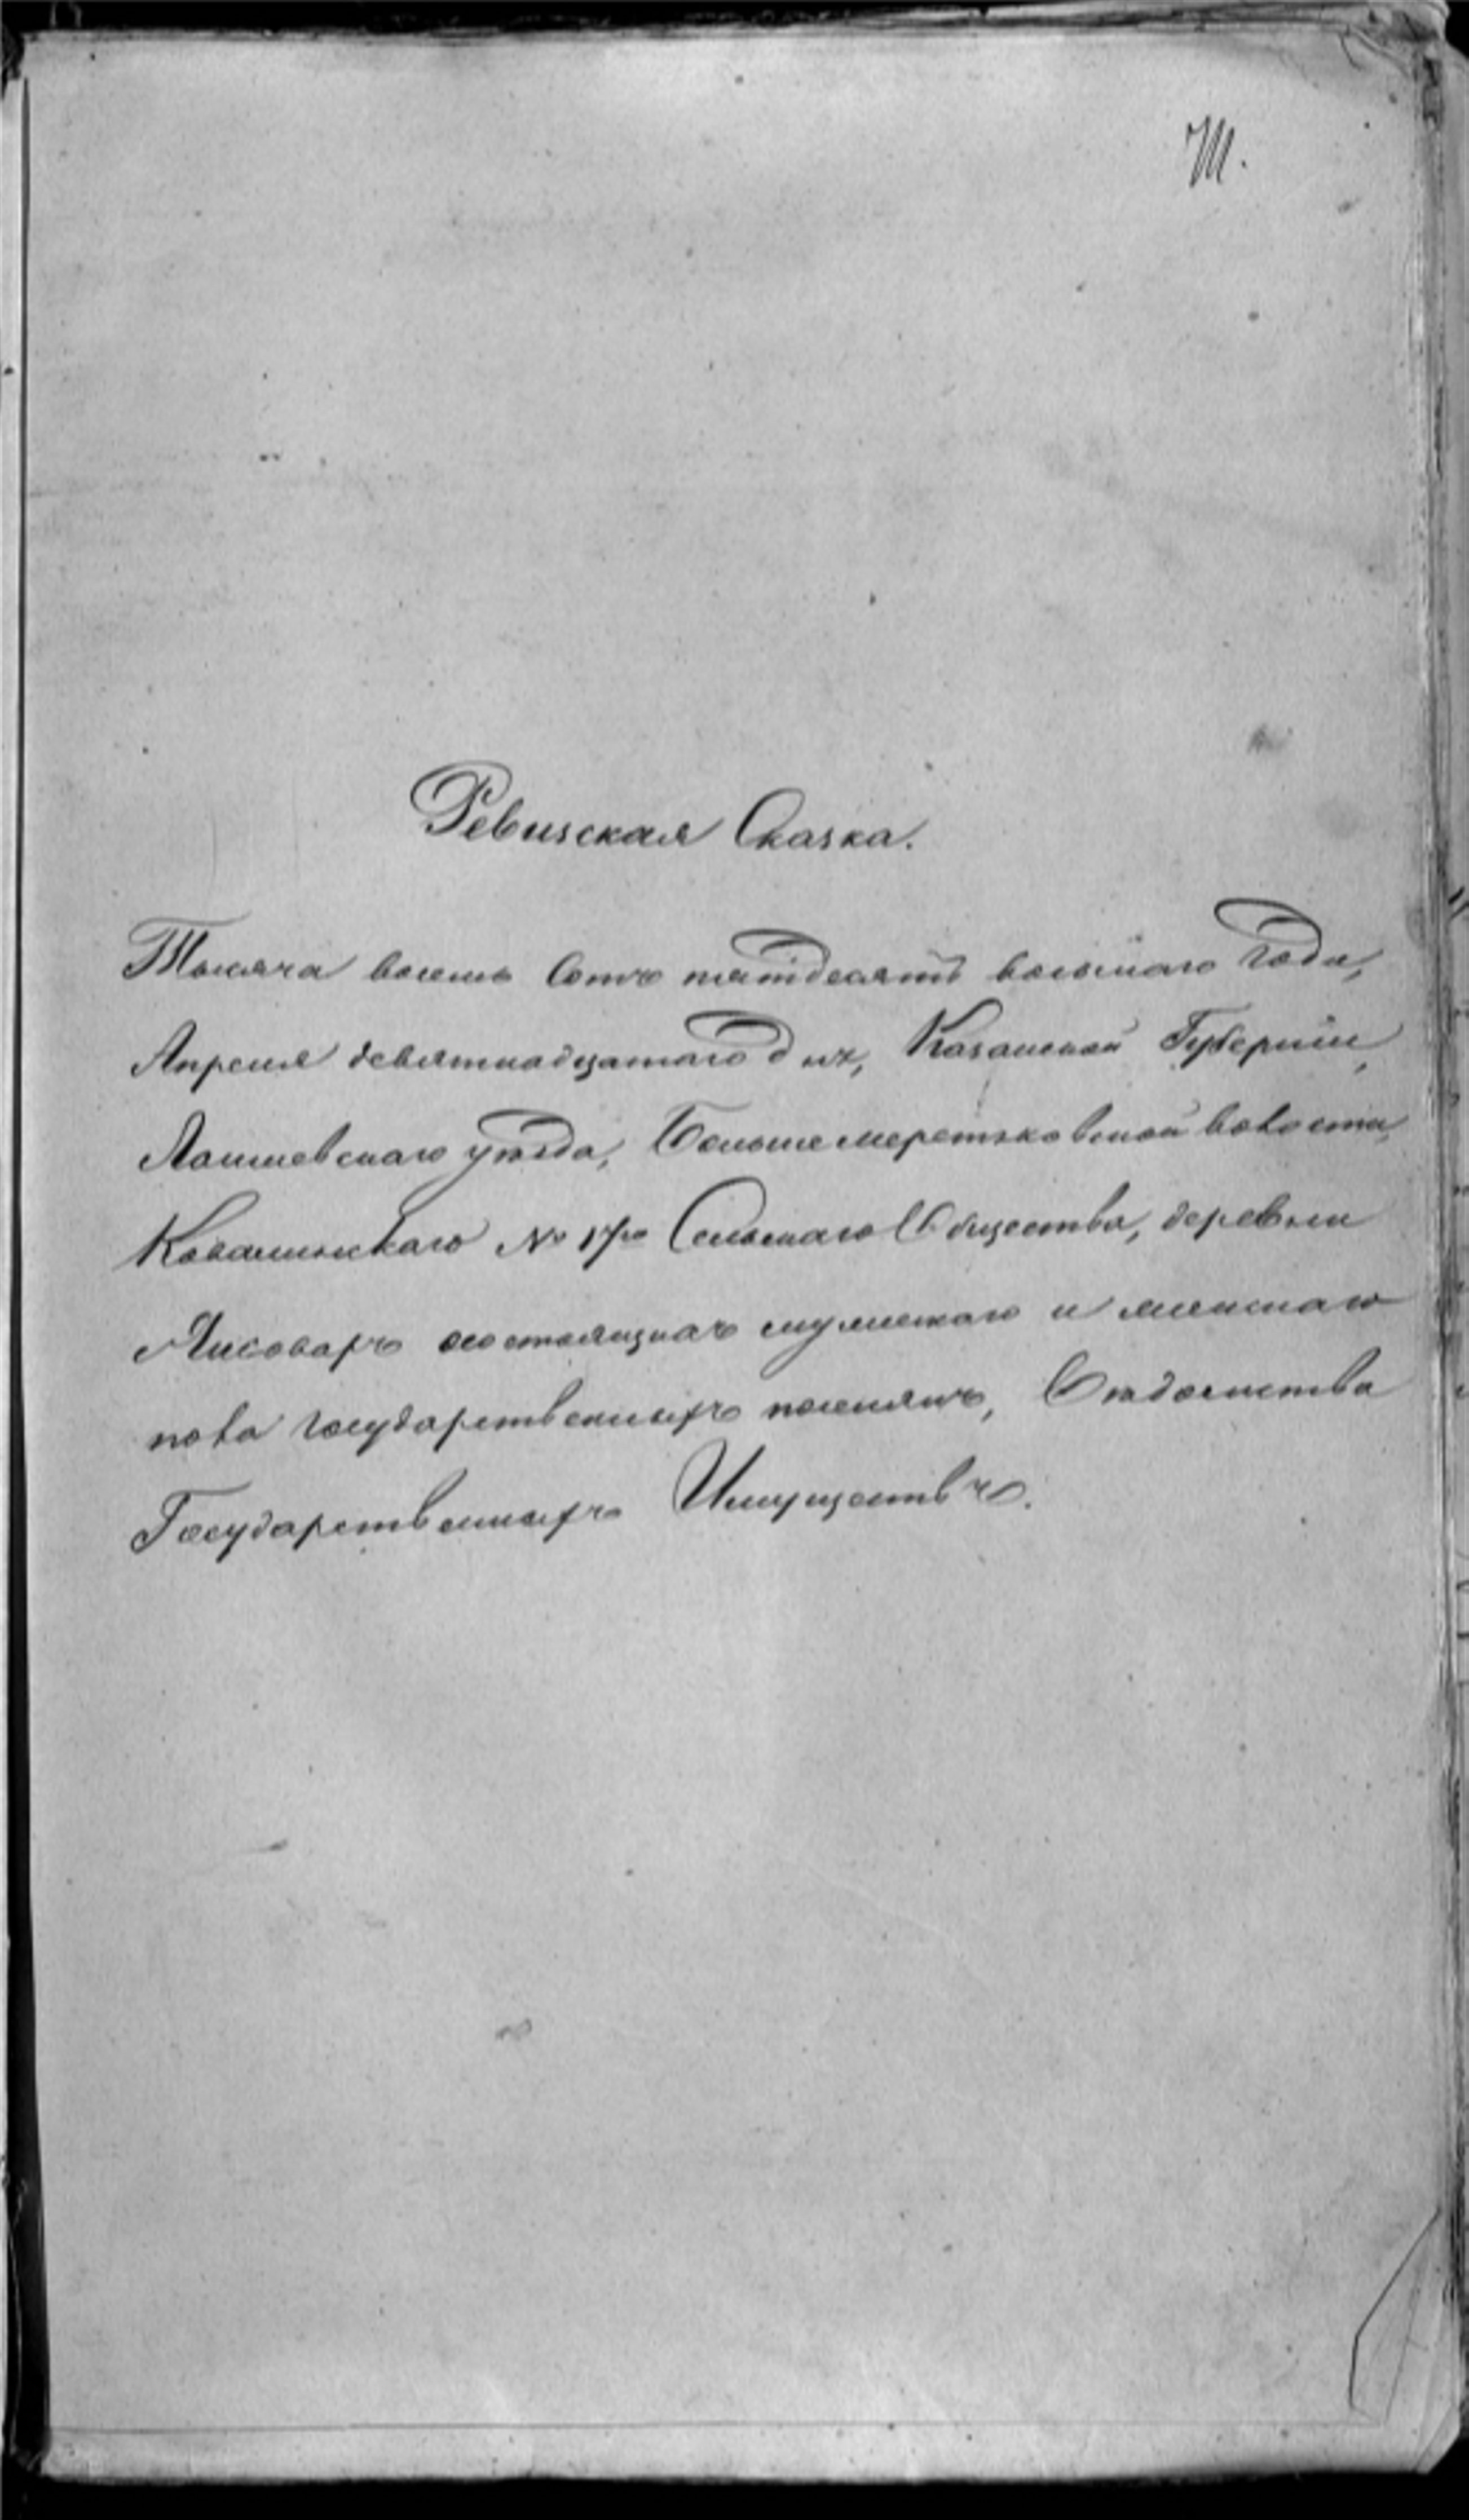 Ревизская Сказка.
Тысяча восемь Сотъ пятдесятъ восьмаго Года,
Апреля девятнадцатаго дня, Казанской Губернии,
Лаишевскаго уѣзда, Большемеретяковской волости,
Ковалинскаго № 17го Сельскаго Общества, деревни
состоящихъ мужескаго и женскаго
пола государственныхъ поселянъ, Вѣдомства
Государственныхъ Имуществъ.